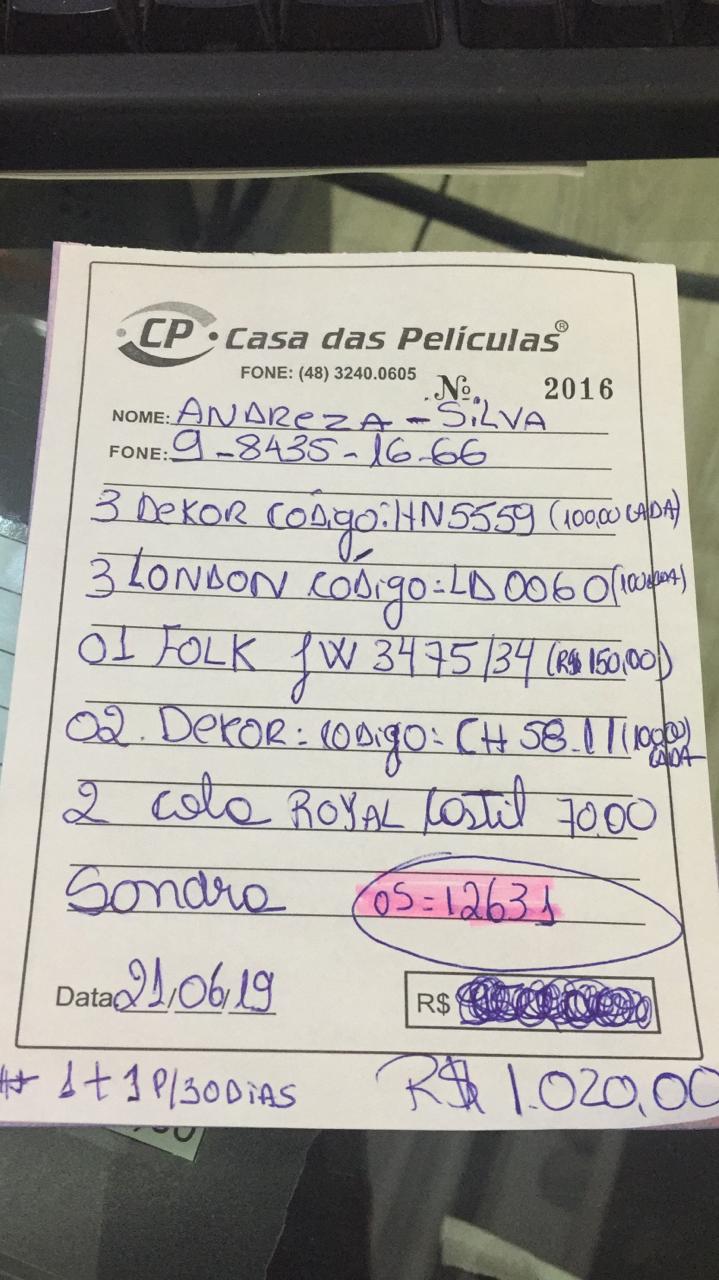 CP • Casa das Películas®
FONE: (48) 3240.0605 Nº 2016
NOME: ANDREZA - SILVA
FONE: 9-8435-16-66
3 DEKOR CÓDigo: HN5559 (100,00 CADA)
3 LONDON CÓDigo: LD0060 (100 CADA)
01 FOLK JW 3475/34 (R$ 150,00)
02. DEKOR: CODigo: CH 58-11 (100,00 CADA
2 cola ROYAL 70.00
Sandra OS=12631
Data 21/06/19 R$
1+1 P/30DiAS R$ 1.020,00